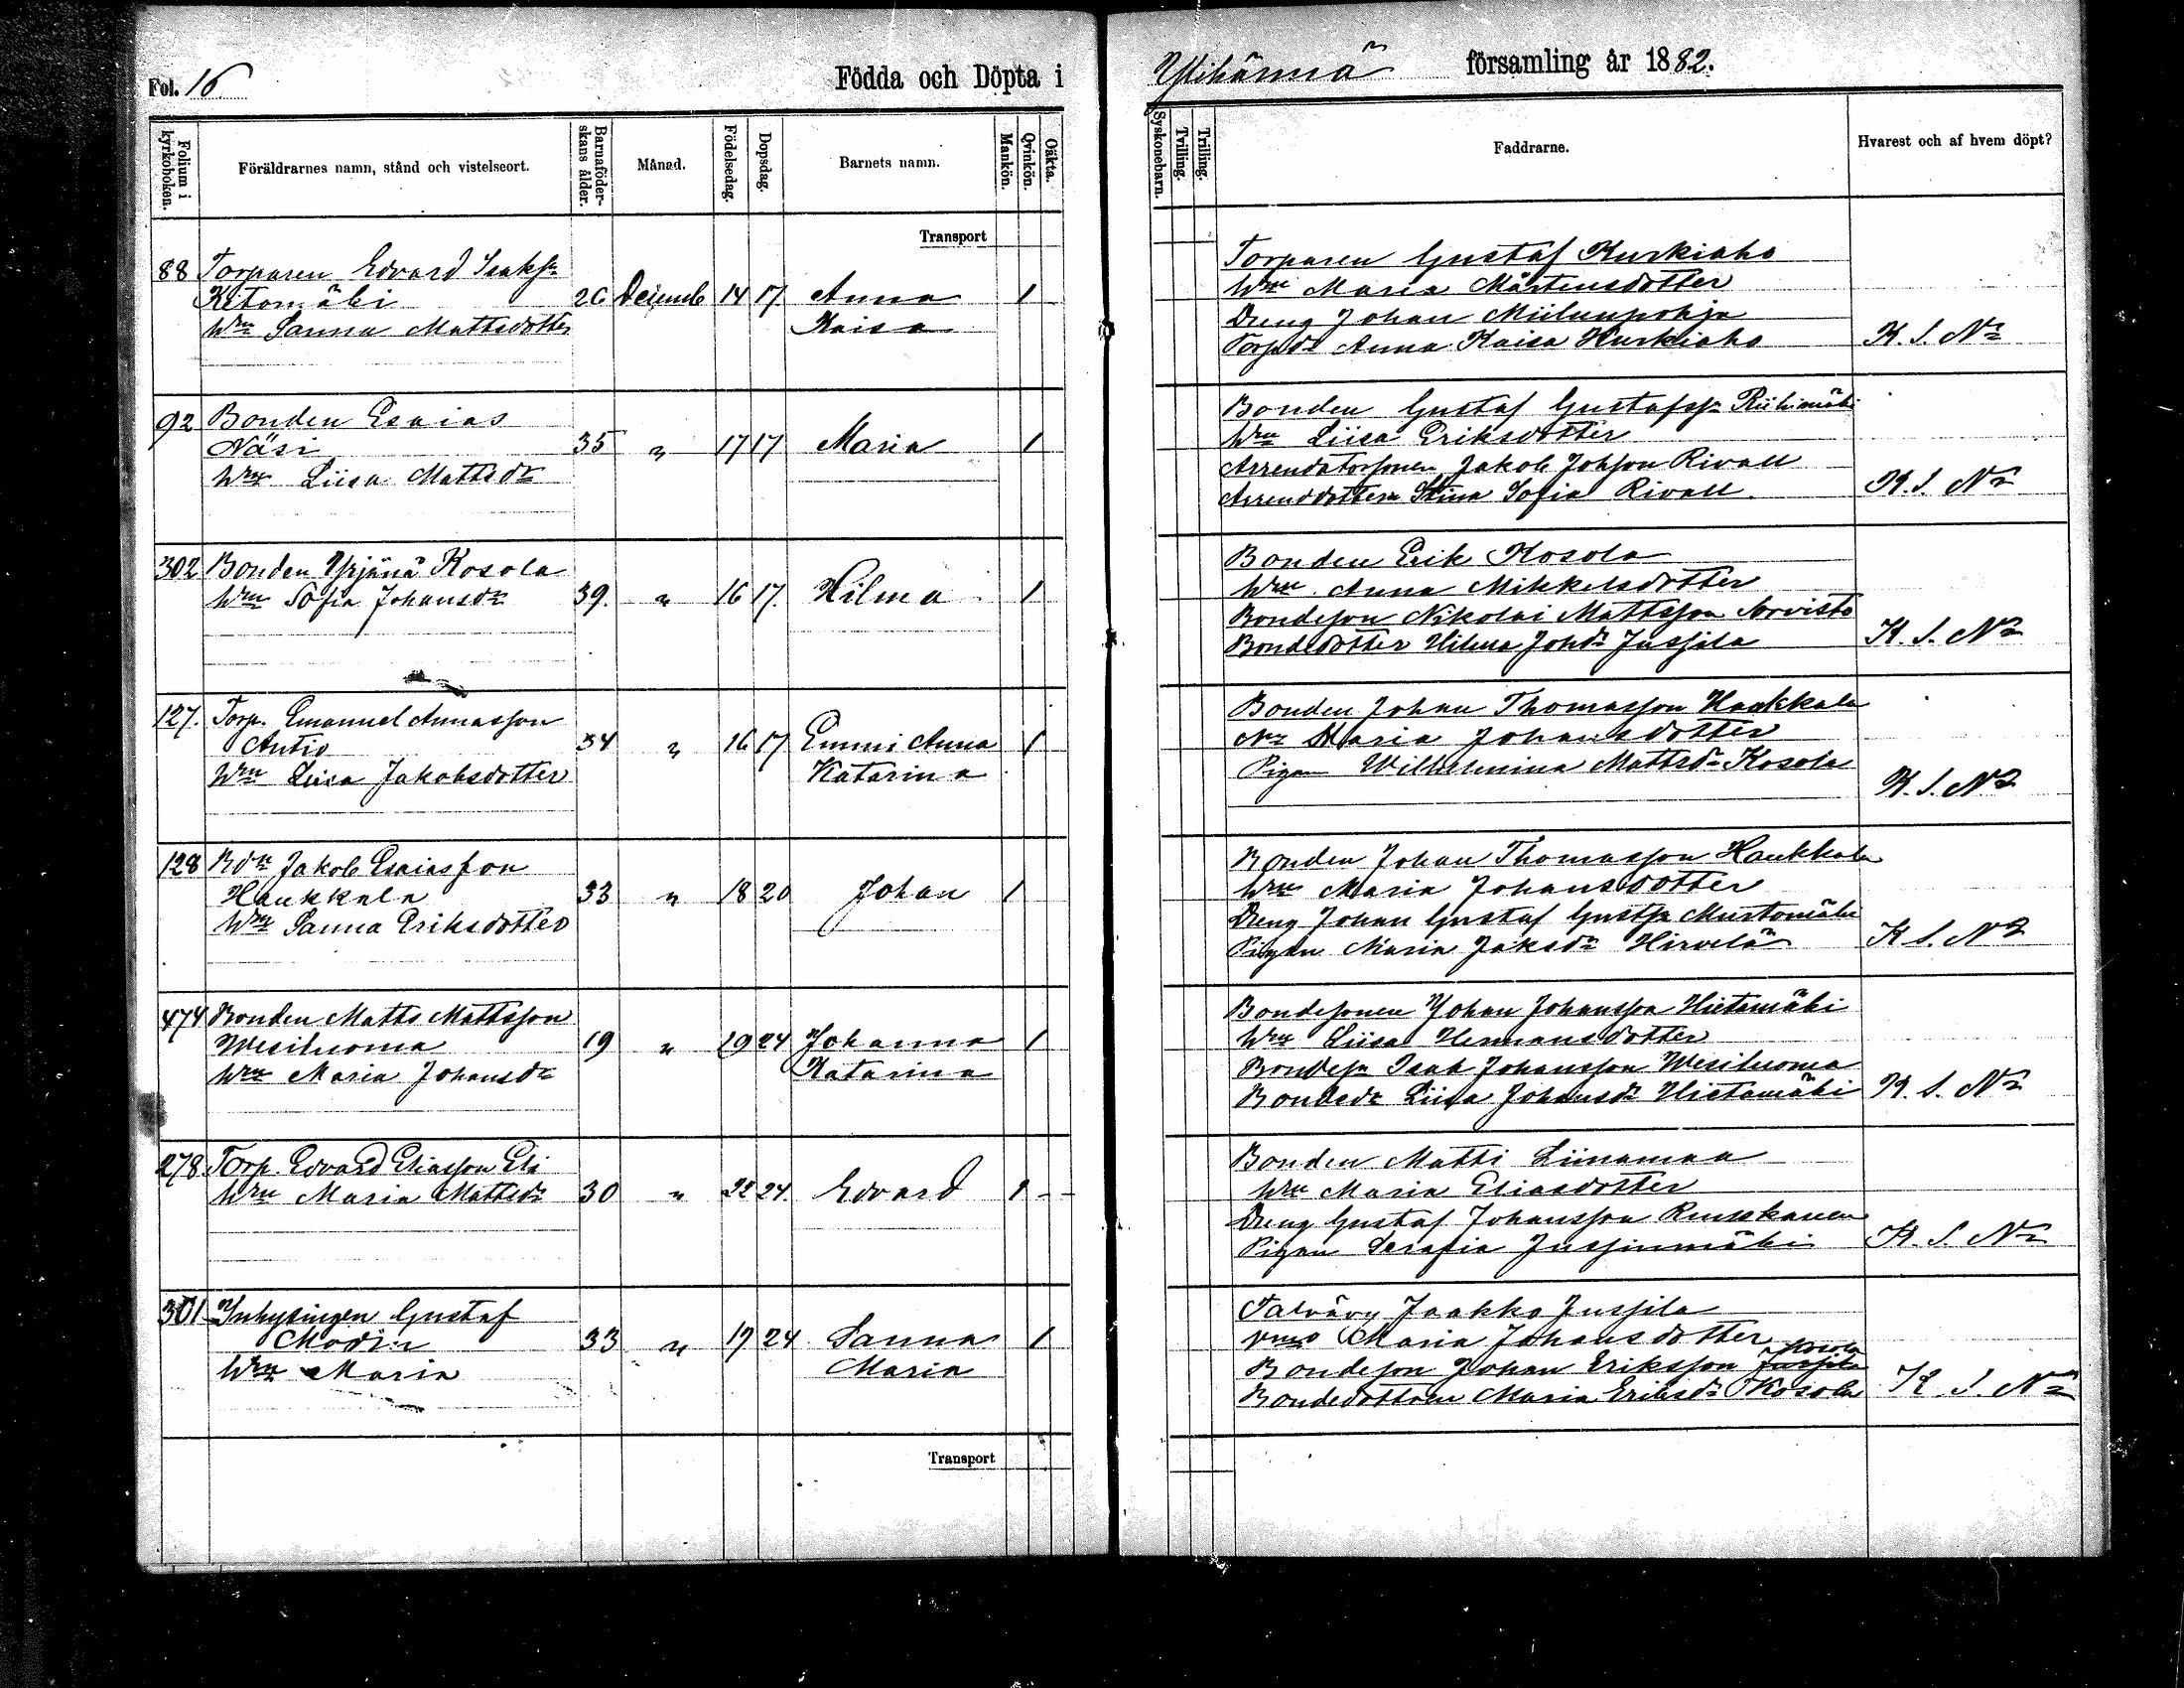 Fol. 16
Födda och Döpta i
Folium i kyrkoboken.
Föräldrarnes namn, stånd och vistelseort.
Barnaföderskans ålder.
Månad.
Födelsedag.
Dopsdag.
Barnets namn.
Mankön.
Qvinkön.
Oäkta.
Transport
88 Torparen Edvard Isaksn
Ketomäki 26 Decemb 14 17 Anna 1
Hru Sanna Mattsdotter Kaisa
92 Bonden Esaias
Näsi 35 " 17 17 Maria 1
Hru Liisa Mattsdr
302 Bonden Yrjänä Kosola
Hru Sofia Johansdr 39. " 16 17. Hilma 1
127. Torp. Emanuel Annasson
Antio 34 " 16 17 Emmi Anna 1
Hru Liisa Jakobsdotter Katarina
128 Bdn Jakob Esaiasson
Haukkala 33 " 18 20 Johan 1
Hru Sanna Eriksdotter
474 Bonden Matts Mattsson
Wesiluoma 19 " 19 24 Johanna 1
Hru Maria Johansdr Katarina
278. Torp. Edvard Eliasson Eli
Hru Maria Mattsdr 30 " 22 24. Edvard 1
301 Inhysingen Gustaf
Modin 33 " 17 24 Sanna 1
Hru Maria Maria
Transport
Ylihärmä församling år 1882.
Syskonebarn.
Tvilling.
Trilling.
Faddrarne.
Hvarest och af hvem döpt?
Torparen Gustaf Kurkiaho
Hru Maria Mårtensdotter
Dreng Johan Miilunpohja
Torpdr Anna Kaisa Kurkiaho K. S. Nr
Bonden Gustaf Gustafssn Riihimäki
Hru Liisa Eriksdotter
Arrendatorsonen Jakob Johsson Rivall
Arrenddottern Stina Sofia Rivall K. S. Nr
Bonden Erik Kosola
Hru Anna Mikkelsdotter
Bondeson Nikolai Mattsson Arvisto
Bondedotter Hilma Johdr Jussila K. S. Nr
Bonden Johan Thomasson Haukkala
Maria Johansdotter
Pigan Wilhelmina Mattsdr Kosola
K. S. Nr
Bonden Johan Thomasson Haukkala
Hru Maria Johansdotter
Dreng Johan Gustaf Gustfsn Murtomäki
Pigan Maria Jaksdr Hirvelä K. S. Nr
Bondesonen Johan Johansson Hietamäki
Hru Liisa Hermansdotter
Bondesn Isak Johansson Wesiluoma
Bondedr Liisa Johansdr Hietamäki K. S. Nr
Bonden Matti Liinamaa
Hru Maria Eliasdotter
Dreng Gustaf Johansson
Pigan Serafia Jussinmäki K. S. Nr
Jaakko Jussila
Maria Johansdotter
Kosola
Bondeson Johan Eriksson Jussila
Bondedottern Maria Eriksdr Kosola K. S. Nr